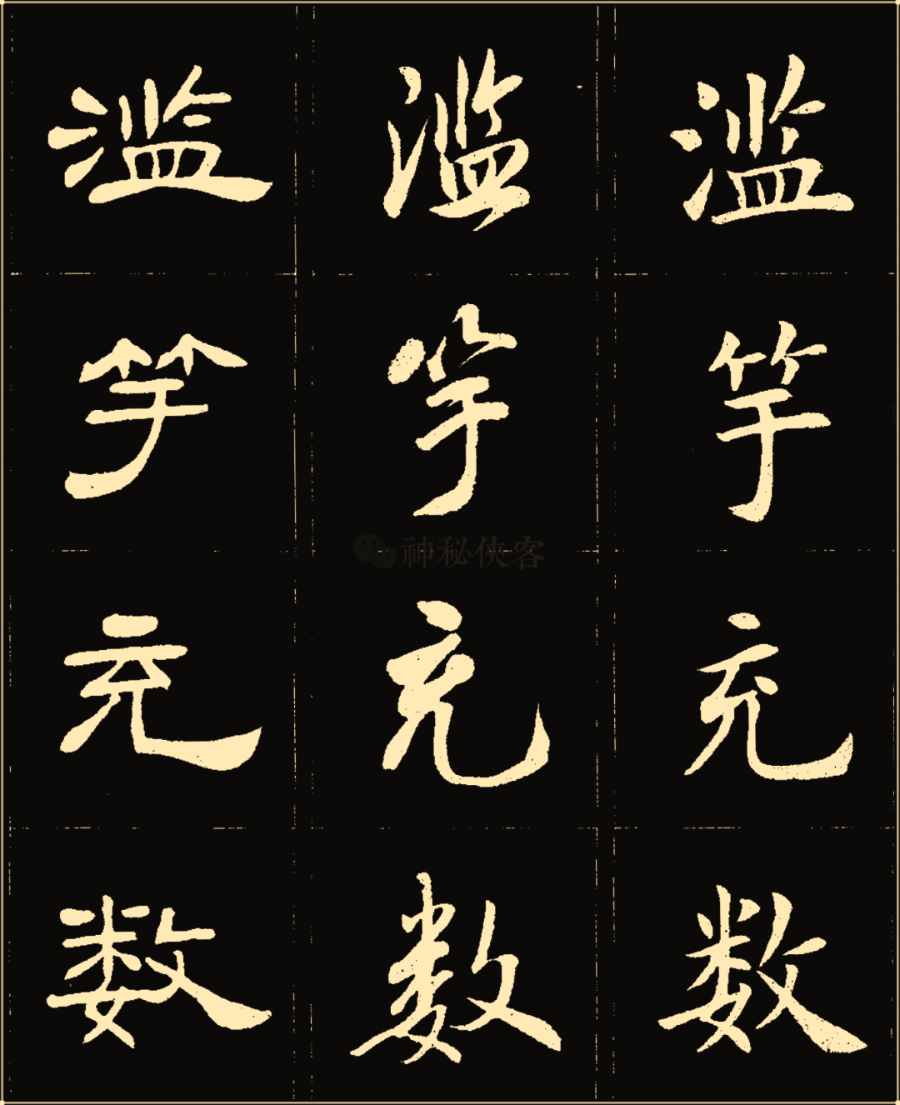 滥滥滥
竽竽竽
神秘侠客
充充充
数数数